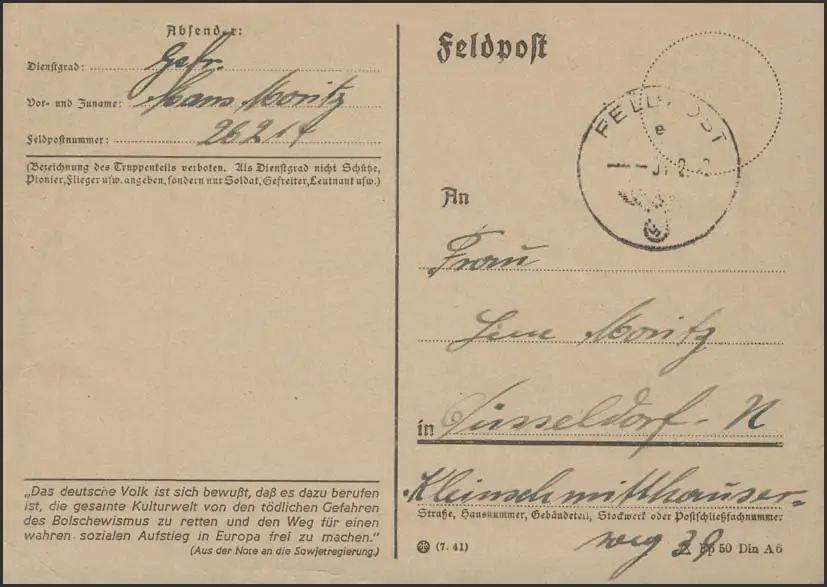 Absender:
Dienstgrad: Gefr.
Vor- und Zuname: Hans Moritz
Feldpostnummer: 26217
(Bezeichnung des Truppenteils verboten. Als Dienstgrad nicht Schütze,
Pionier, Flieger usw. angeben, sondern nur Soldat, Gefreiter, Leutnant usw.)
„Das deutsche Volk ist sich bewußt, daß es dazu berufen
ist, die gesamte Kulturwelt von den tödlichen Gefahren
des Bolschewismus zu retten und den Weg für einen
wahren sozialen Aufstieg in Europa frei zu machen.“
(Aus der Note an die Sowjetregierung.)
Feldpost
FELDPOST
e
An
Frau
Moritz
in Düsseldorf - N
Kleinschmitthauser-
Straße, Hausnummer, Gebäudeteil, Stockwerk oder Postschließfachnummer
weg 39
(7. 41)
Fp 50 Din A 6